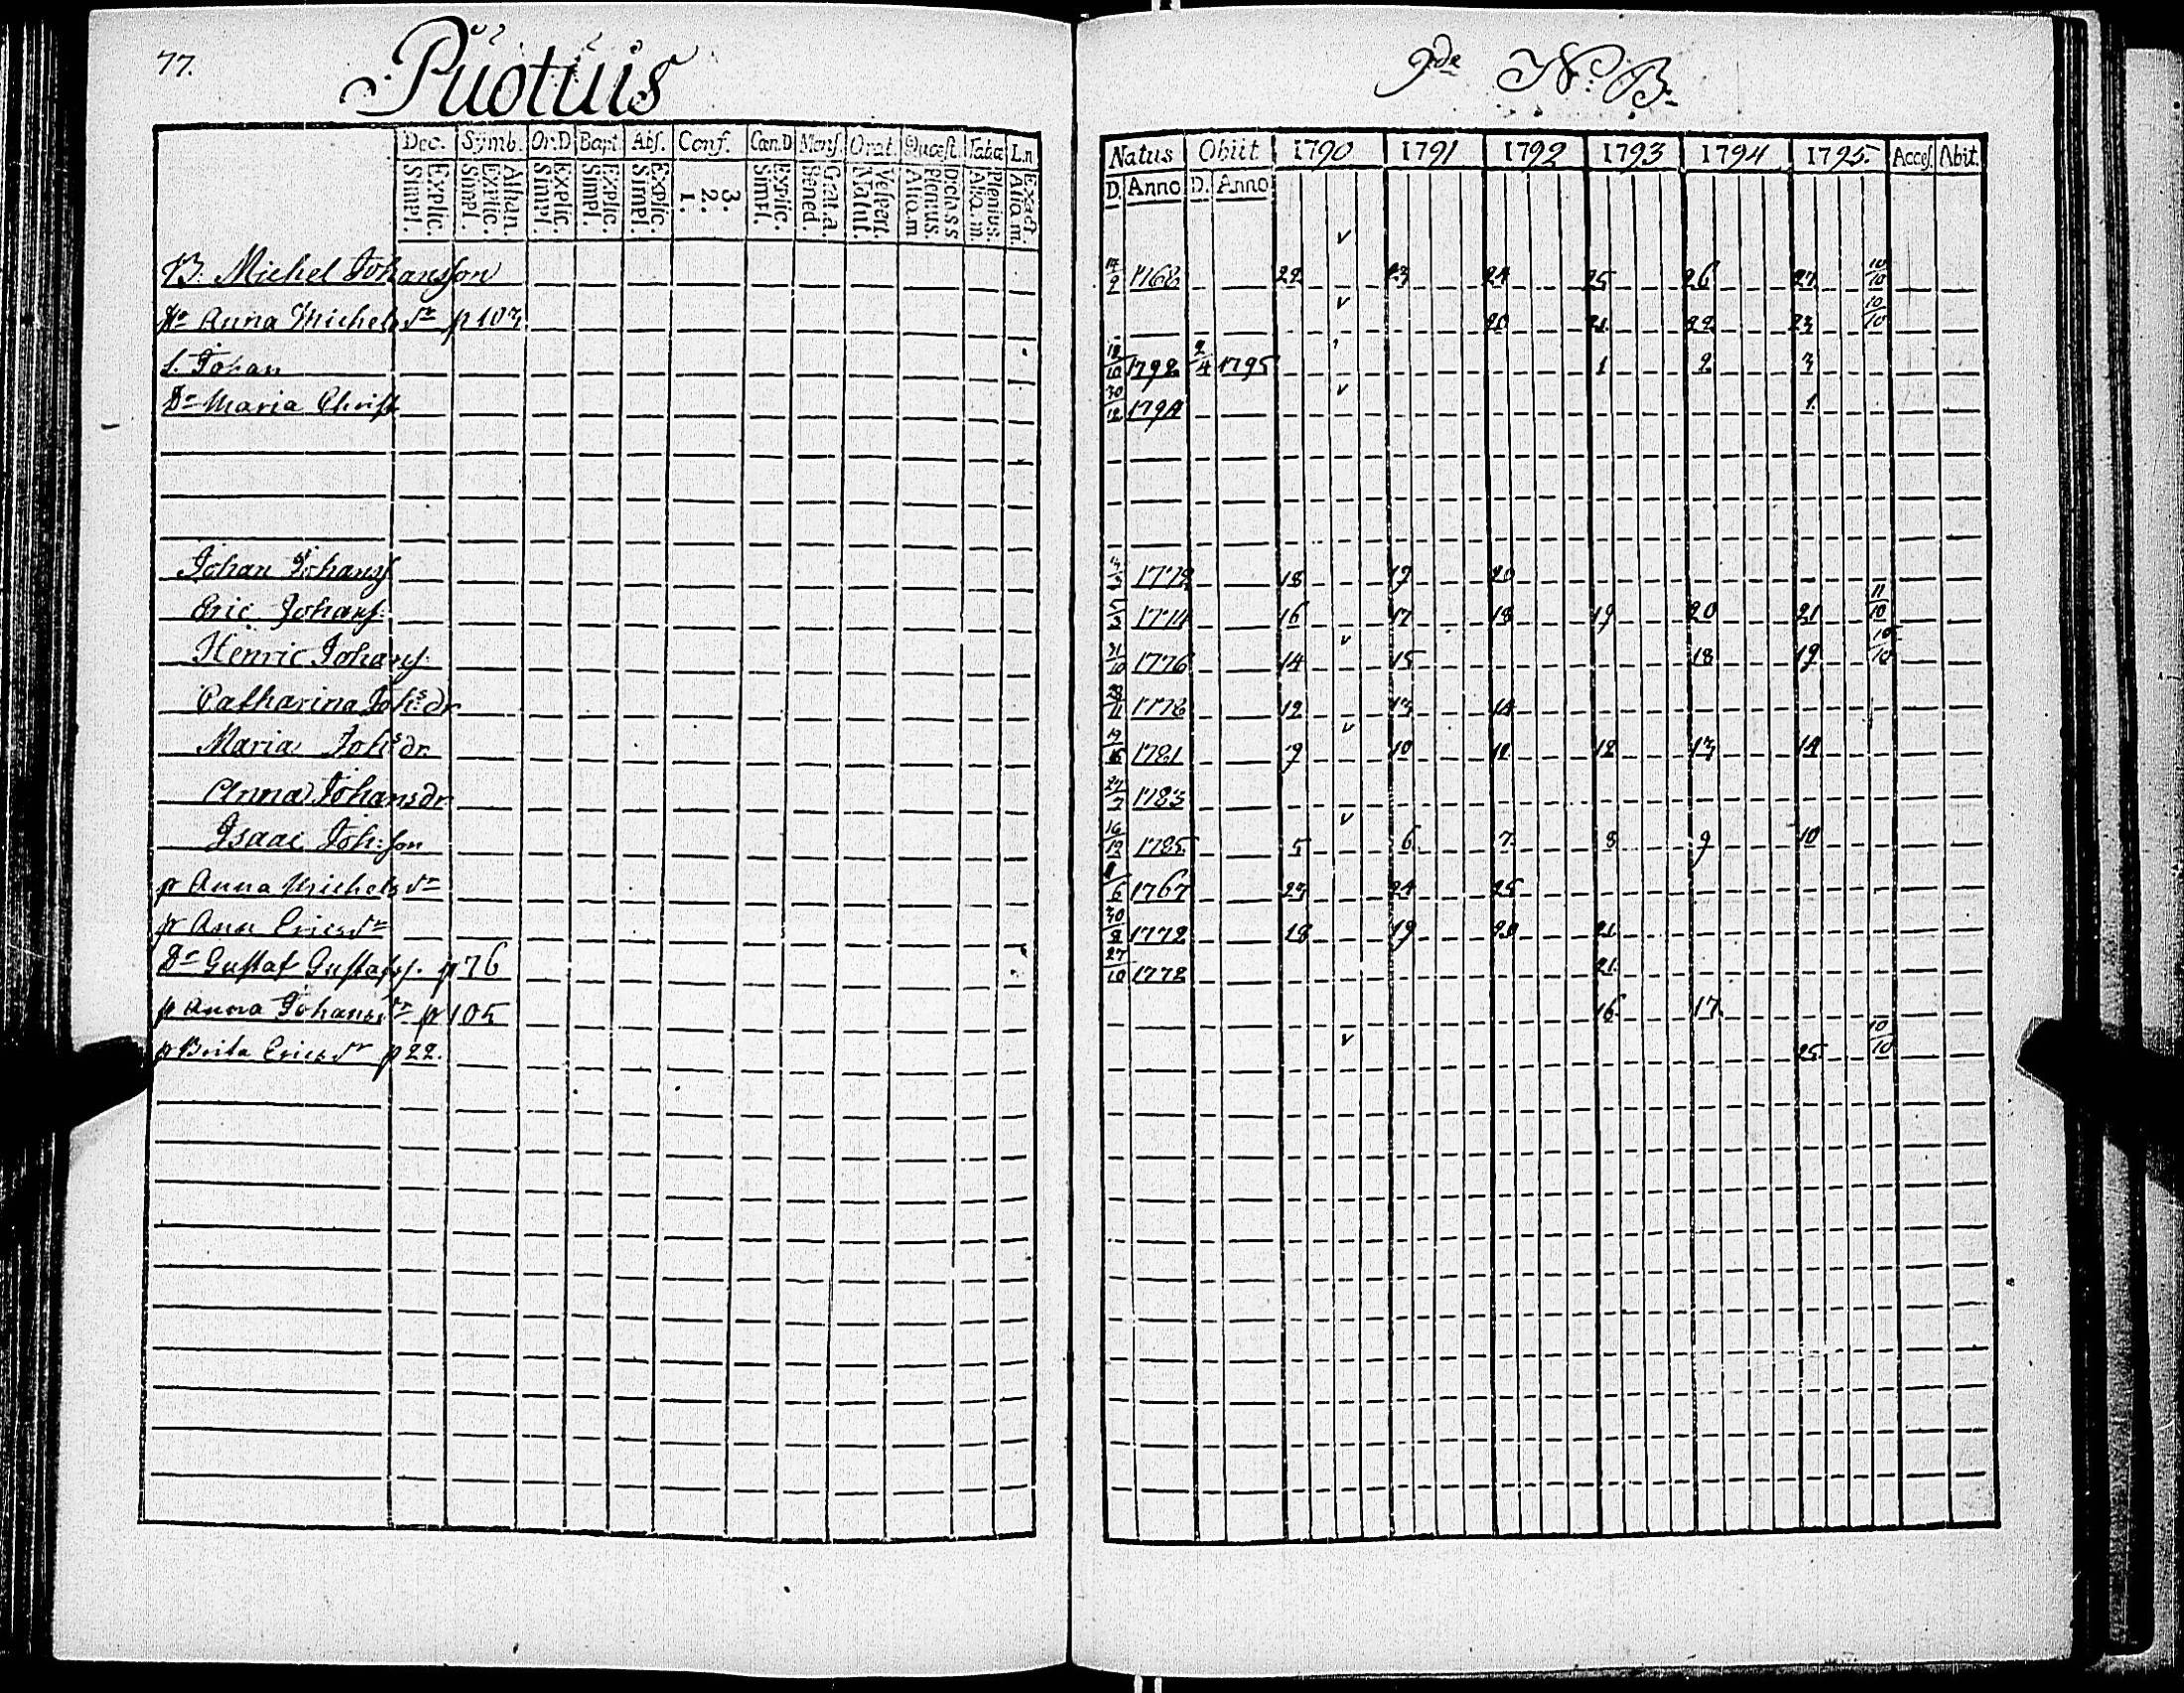 77.
Puotuis
9de No. B.
Dec. Symb. Or.D Bapt. Abs. Conf. Can.D Mens. Orat. Quæst. Tabæ L.n
Simpl. Explic. Simpl. Explic. Athan. Simpl. Explic. Simpl. Explic. Simpl. Explic. 1. 2. 3. Simpl. Explic. Bened. Grat.a. Matut. Vespert. Plenius.
Natus Obiit 1790 1791 1792 1793 1794 1795. Acces. Abit.
D. Anno D. Anno
B. Michel Johansson 1768 22 23 24 25 26 27 10/10
Anna Michelsdr p 103 20 21 22 23 10/10
s. Johan 1792 2/4 1795 1 2 3
Dr Maria Christ 30/12 1794 1.
Johan Johans 1772 18 19 20
Eric Johans: 1774 16 17 18 19 20 21 11/10
Henric Johans. 21/10 1776 14 15 18 19 10/10
Catharina Johs dr 28/11 1778 12 13 14
Maria Johs dr. 1781 9 10 11 12 13 14
Anna Johansdr 1783
Isaac Joh:son 16/12 1785 5 6 7 8 9 10
p Anna Michelsdr 1767 23 24 25
p Ann Ericsdr 30/8 1772 18 19 20 21
Gustaf Gustafss. p 76 27/10 1772 21.
p Anna Johansdr p 105 16 17
p Brita Ericsdr p 22. 25 10/10